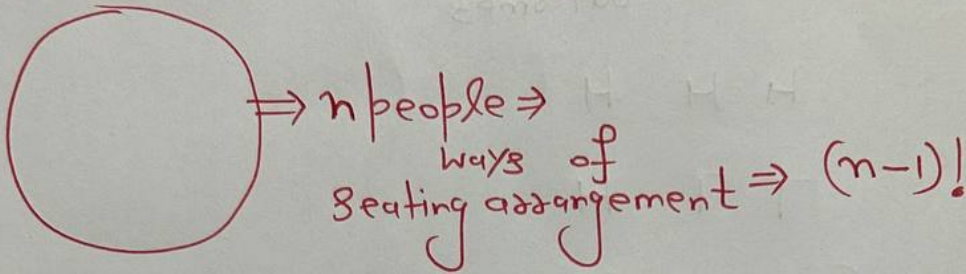 ⇒ n people ⇒
ways of
Seating arrangement ⇒ (n-1)!